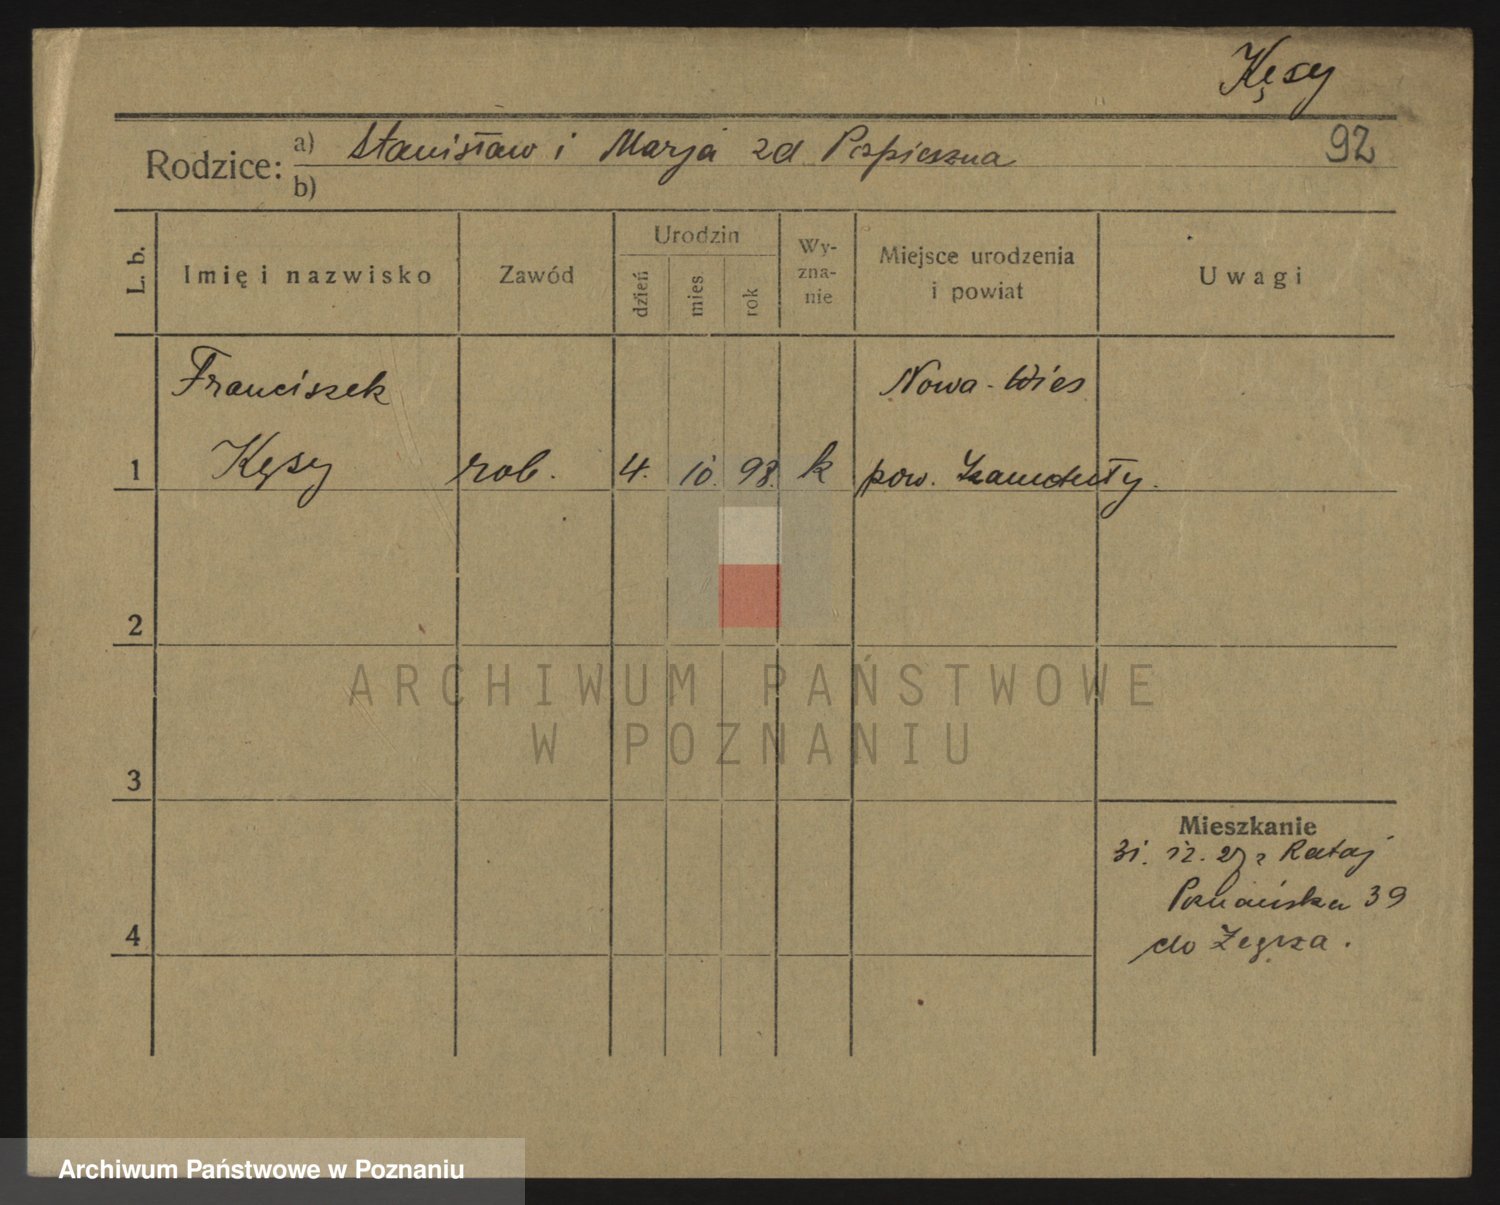 Kęsy
92
Rodzice: a) Stanisław i Marja zd Pospieszna
b)
L. b.
Imię i nazwisko
Zawód
Urodzin
dzień
mies
rok
Wy-
zna-
nie
Miejsce urodzenia
i powiat
Uwagi
Franciszek
Nowa-Wies
1 Kęsy rob. 4. 10. 98. k pow. Szamotuły.
2
3
4
Mieszkanie
31. 12. 27 z Rataj
Poznańska 39
do Zegrza.
ARCHIWUM PAŃSTWOWE
W POZNANIU
Archiwum Państwowe w Poznaniu